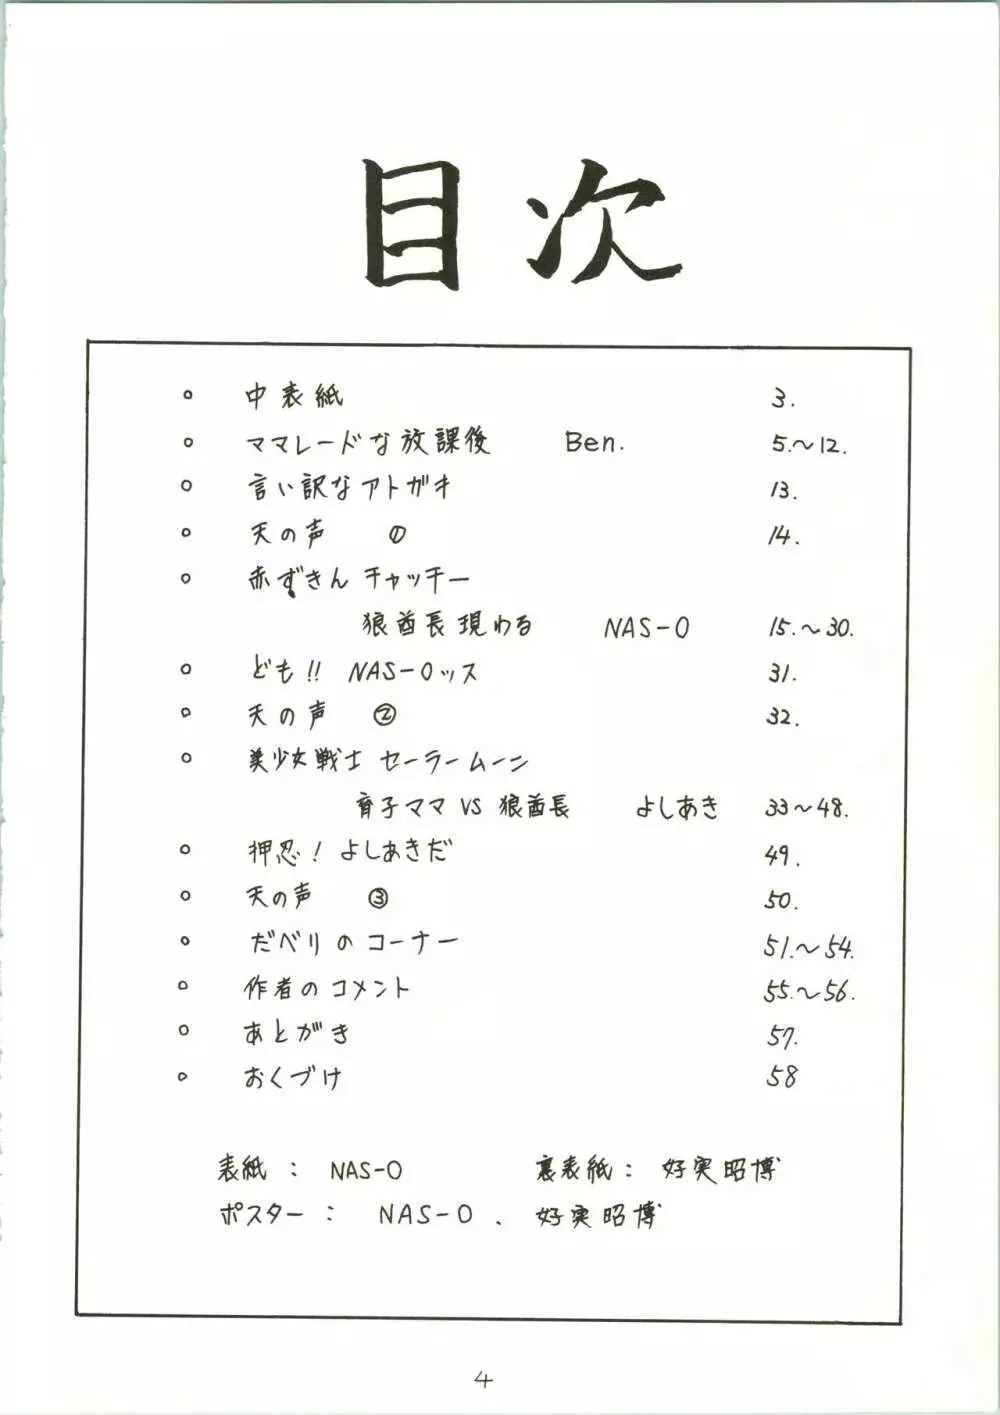 目次
○ 中表紙 3.
○ ママレードな放課後 Ben. 5.〜12.
○ 言い訳なアトガキ 13.
○ 天の声 ① 14.
○ 赤ずきんチャッチー
狼酋長現わる NAS-O 15.〜30.
○ ども!! NAS-Oッス 31.
○ 天の声 ② 32.
○ 美少女戦士 セーラームーン
育子ママ VS 狼酋長 よしあき 33〜48.
○ 押忍! よしあきだ 49.
○ 天の声 ③ 50.
○ だべりのコーナー 51.〜54.
○ 作者のコメント 55.〜56.
○ あとがき 57.
○ おくづけ 58
表紙: NAS-O 裏表紙: 好実昭博
ポスター: NAS-O、好実昭博
4